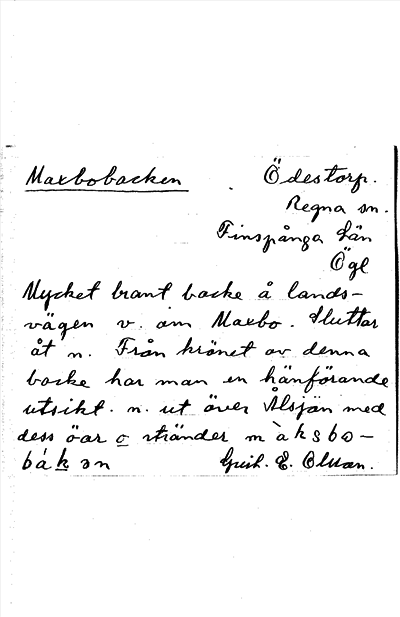 Maxbobacken Ödestorp.
Regna sn.
Finspånga län
Ögl
Mycket brant backe å lands-
vägen v. om Maxbo. Sluttar
åt n. Från krönet av denna
backe har man en hänförande
utsikt. n. ut över Ålsjön med
dess öar o stränder m àksbo-
bákən E. Olsson.